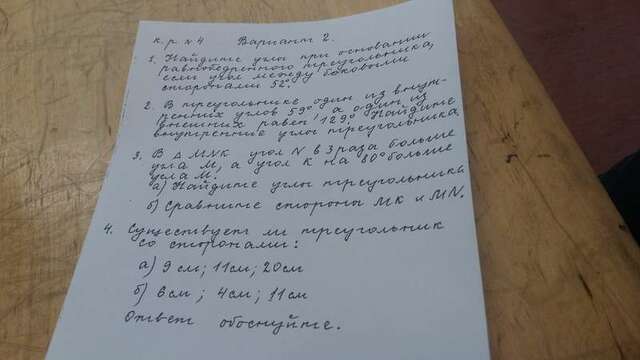 к. р. № 4 Вариант 2.
1. Найдите углы при основании
равнобедренного треугольника,
если угол между боковыми
сторонами 52°.
2. В треугольнике один из внут-
ренних углов 59°, а один из
внешних равен 129°. Найдите
внутренние углы треугольника
3. В △ MNK угол N в 3 раза больше
угла M, а угол K на 80° больше
угла M.
а) Найдите углы треугольника
б) Сравните стороны MK и MN.
4. Существует ли треугольник
со сторонами:
а) 9 см; 11 см; 20 см
б) 6 см; 4 см; 11 см
Ответ обоснуйте.